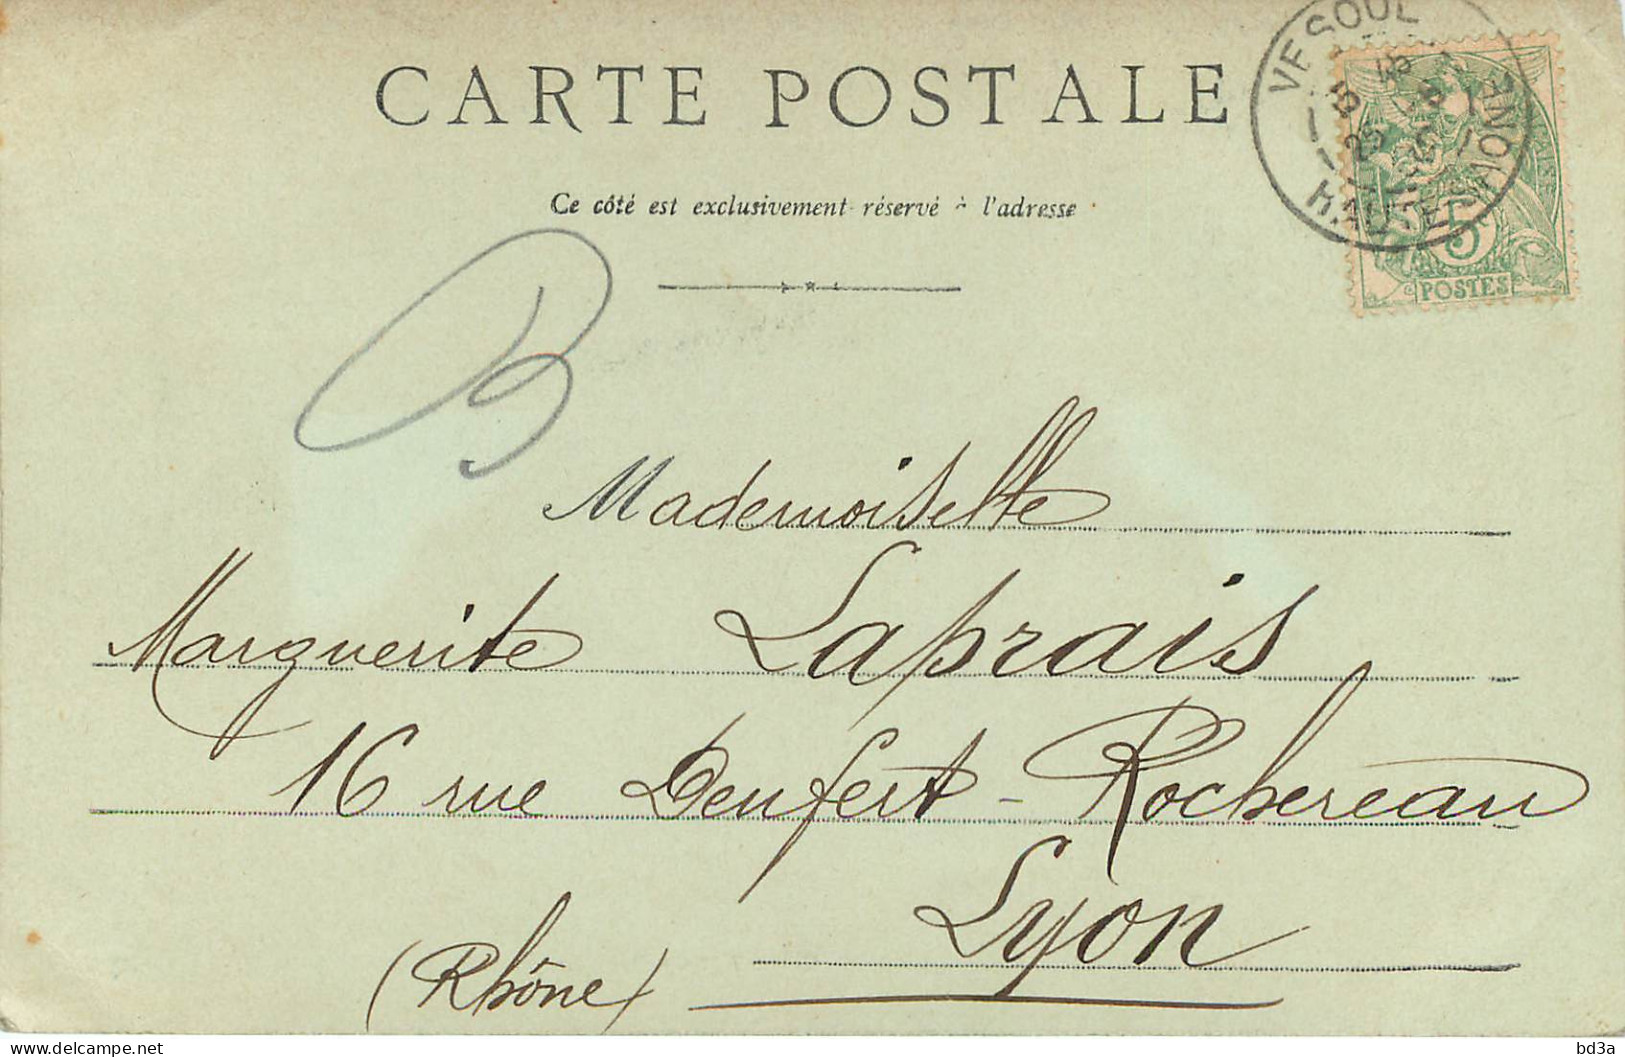 CARTE POSTALE
Ce côté est exclusivement réservé à l'adresse
VESOUL
HAUTE SAONE
5
POSTES
B
Mademoiselle
Marguerite Laprais
16 rue Denfert-Rochereau
Lyon
(Rhône)
delcampe.net
bd3a